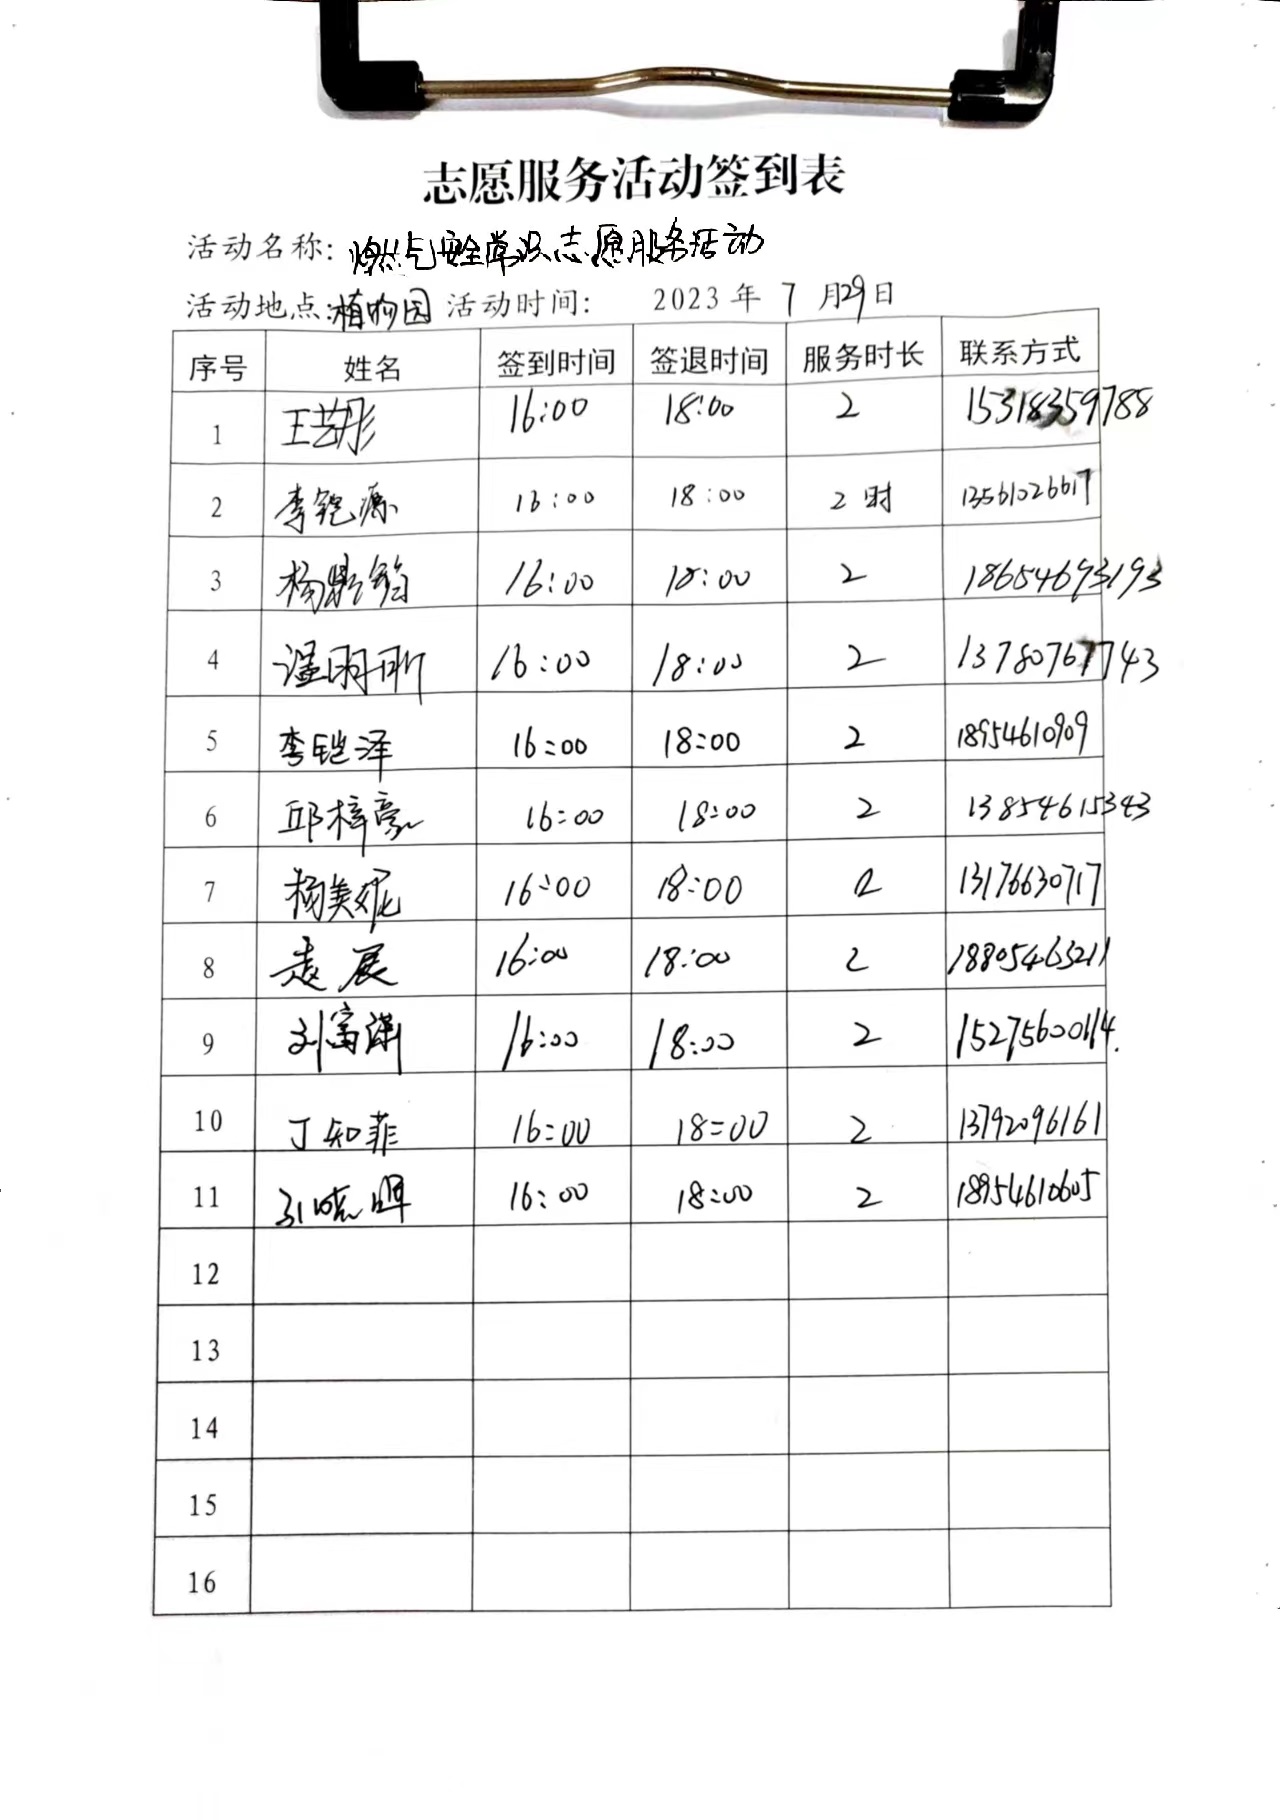 志愿服务活动签到表
活动名称: 燃气安全常识志愿服务活动
活动地点: 植物园 活动时间: 2023 年 7 月 29 日
序号 姓名 签到时间 签退时间 服务时长 联系方式
1 王艺彤 16:00 18:00 2 15318359788
2 李铠源 16:00 18:00 2时 13561026617
3 杨 16:00 18:00 2 18654693193
4 16:00 18:00 2 13780767743
5 李铠泽 16:00 18:00 2 18954610909
6 邱梓豪 16:00 18:00 2 13854615343
7 杨美妮 16:00 18:00 2 13176630717
8 展 16:00 18:00 2 18805463211
9 刘富 16:00 18:00 2
10 丁知菲 16:00 18:00 2 13792096161
11 晓 16:00 18:00 2 18954610605
12
13
14
15
16